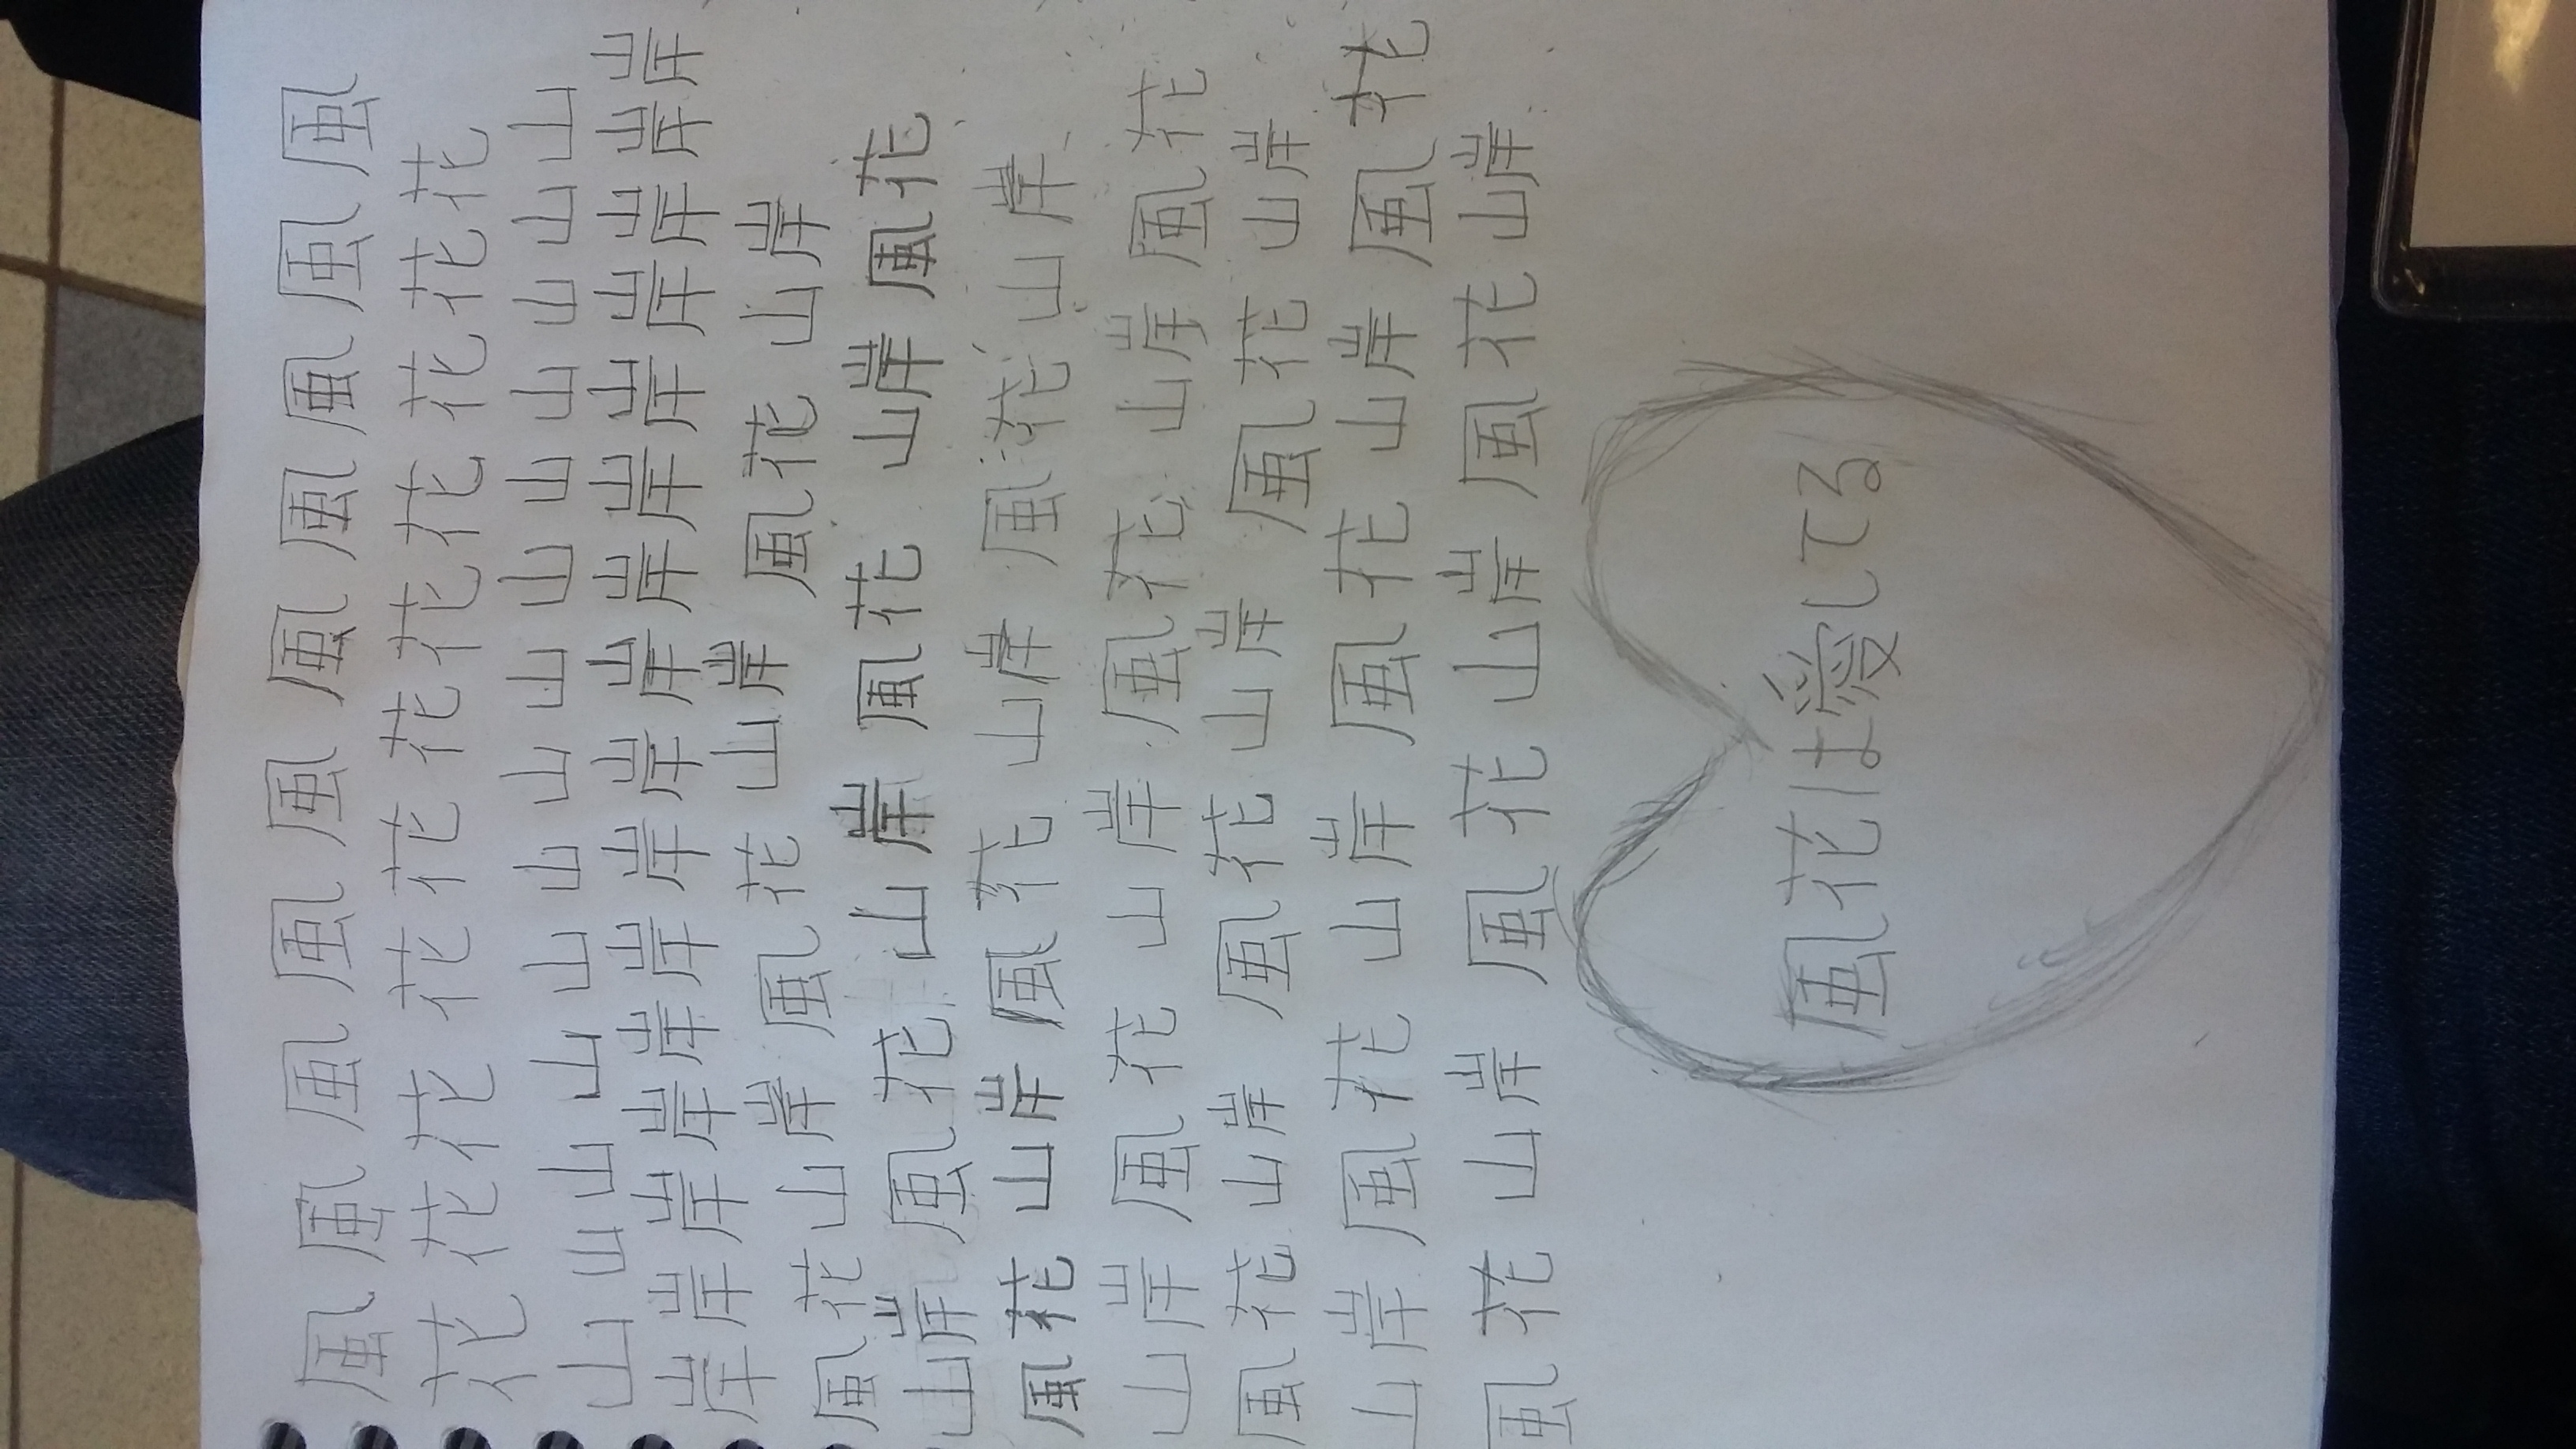 風風風風風風風風風風
花花花花花花花花花花花
山山山山山山山山山山山山山山
岸岸岸岸岸岸岸岸岸岸岸岸岸岸岸岸
風花山岸風花山岸風花山岸
山岸風花山岸風花山岸風花
風花山岸風花山岸風花山岸
山岸風花山岸風花山岸風花
風花山岸風花山岸風花山岸
山岸風花山岸風花山岸風花
風花山岸風花山岸風花山岸
風花は愛してる